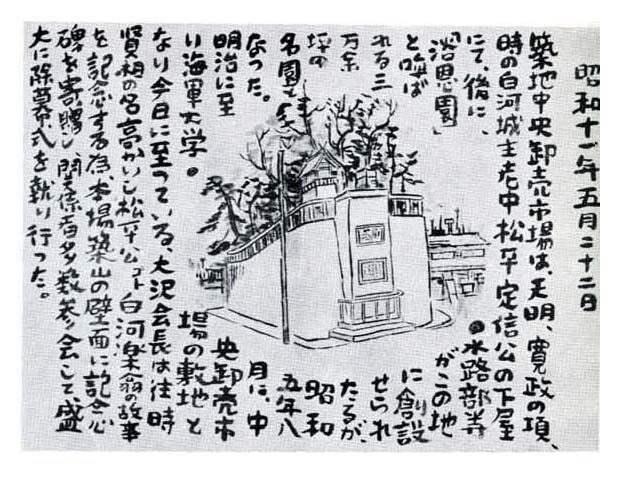 昭和十一年五月二十二日
築地中央卸売市場は、天明、寛政の項、
時の白河城主老中松平定信公の下屋
にて、後に、
「浴恩園」
と呼ば
れる三
万余
坪の
名園と
なった。
明治に至
り海軍大学。
●水路部等
がこの地
に創設
せられ
たるが、
昭和
五年八
月に、中
央卸売市
場の敷地と
なり今日に至っている、大沢会長は往時
賢相の名高かりし松平公コト白河楽翁の故事
を記念する為、本場築山の壁面に記念
碑を寄贈し関係者多数参会して、盛
大に除幕式を執り行った。